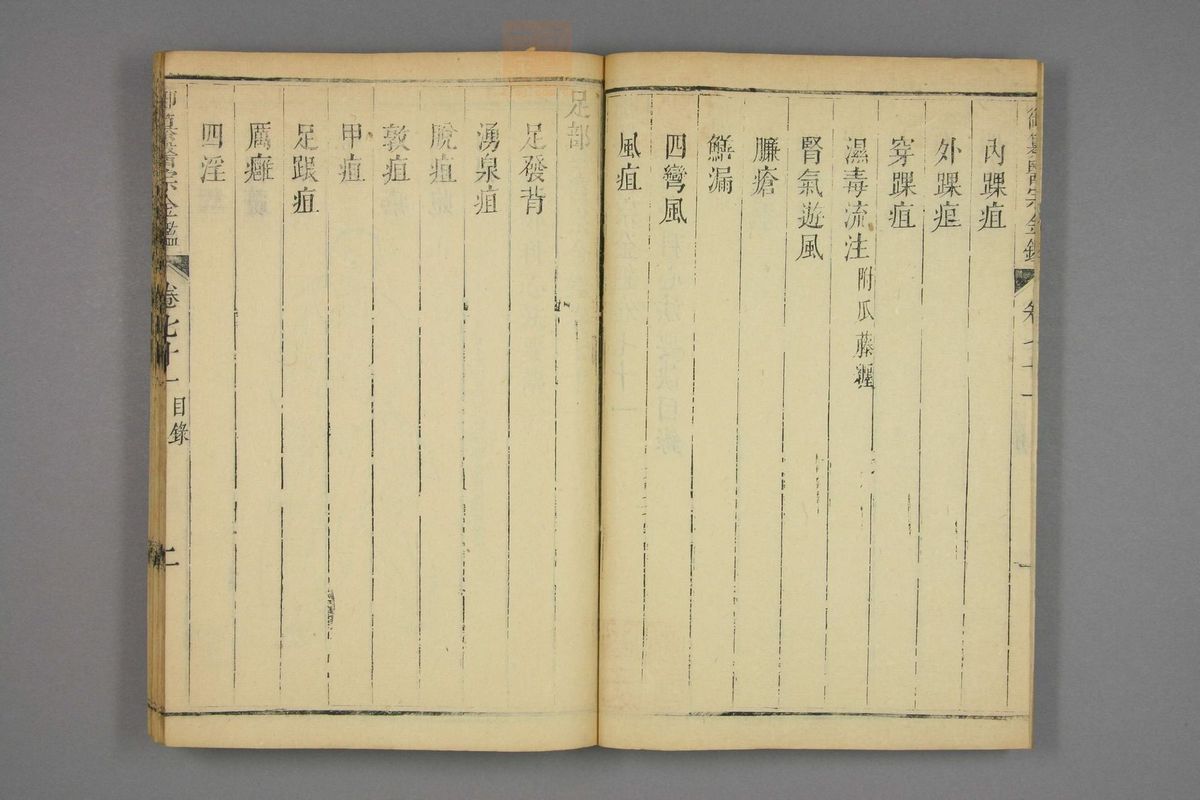 御纂醫宗金鑑
內踝疽
外踝疽
穿踝疽
濕毒流注 附瓜藤纏
腎氣遊風
臁瘡
鱔漏
四彎風
風疽
足部
足發背
湧泉疽
脫疽
敦疽
甲疽
足跟疽
厲癰
四淫
御纂醫宗金鑑 卷七十一 目錄 二